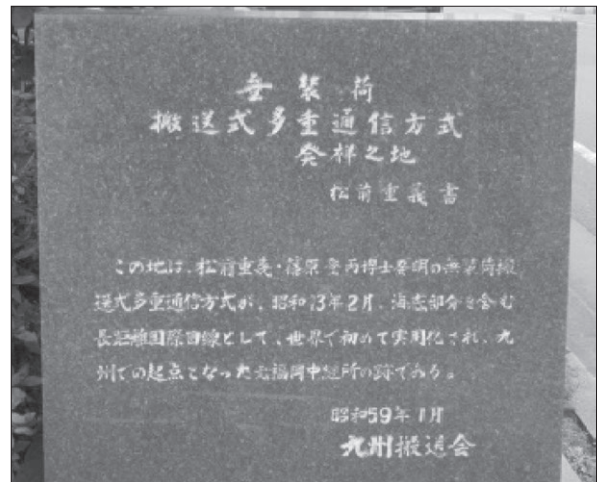 無装荷
搬送式多重通信方式
発祥之地
松前重義書
この地は、松前重義・篠原登両博士発明の無装荷搬
送式多重通信方式が、昭和13年2月、海底部分を含む
長距離国際回線として、世界で初めて実用化され、九
州での起点となった元福岡中継所の跡である。
昭和59年1月
九州搬送会